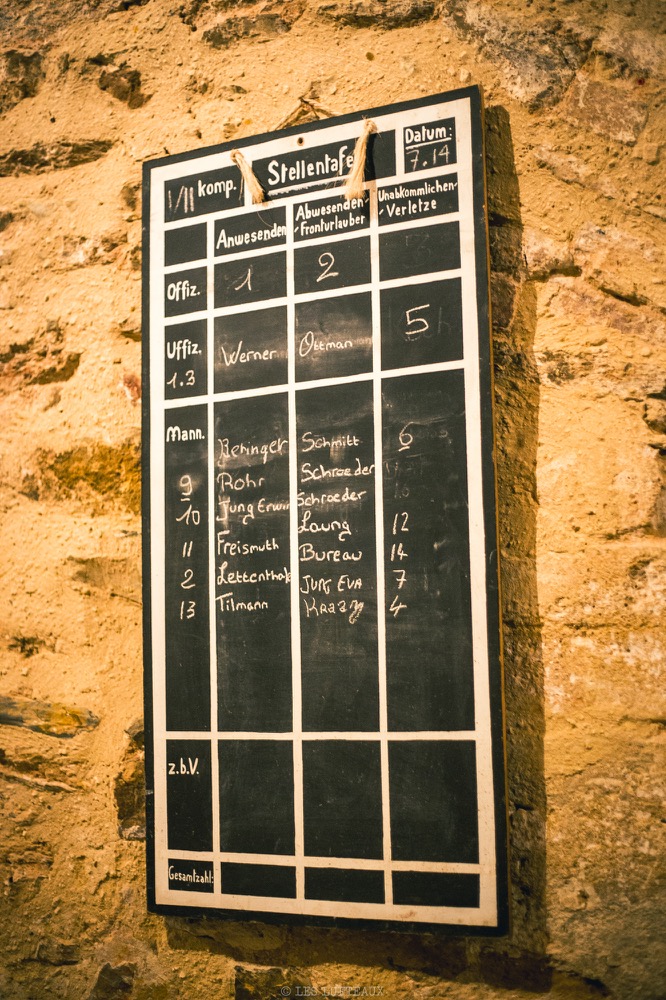 I/II komp. Stellentafel Datum:
7.14
Anwesenden Abwesenden Unabkömmlichen
-Fronturlauber -Verletze
Offiz. 1 2
Uffiz. Werner Ottman 5
1.3
Mann. Beringer Schmitt 6
9 Rohr Schroeder
10 Jung Erwin Schroeder
11 Freismuth Laung 12
2 Lettenthale Bureau 14
13 Tilmann Jung Eva 7
Kraazy 4
z.b.V.
Gesamtzahl:
© LES LUFTEAUX